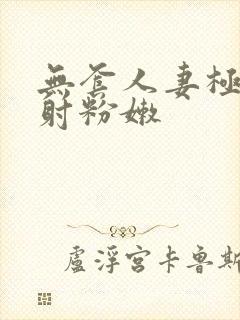 無套人妻極
射粉嫩
盧浮宮卡魯斯